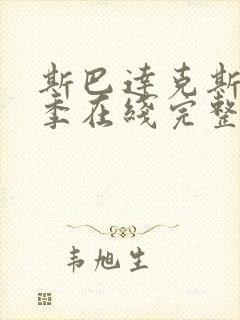 斯巴达克斯
季在线完整
韦旭生